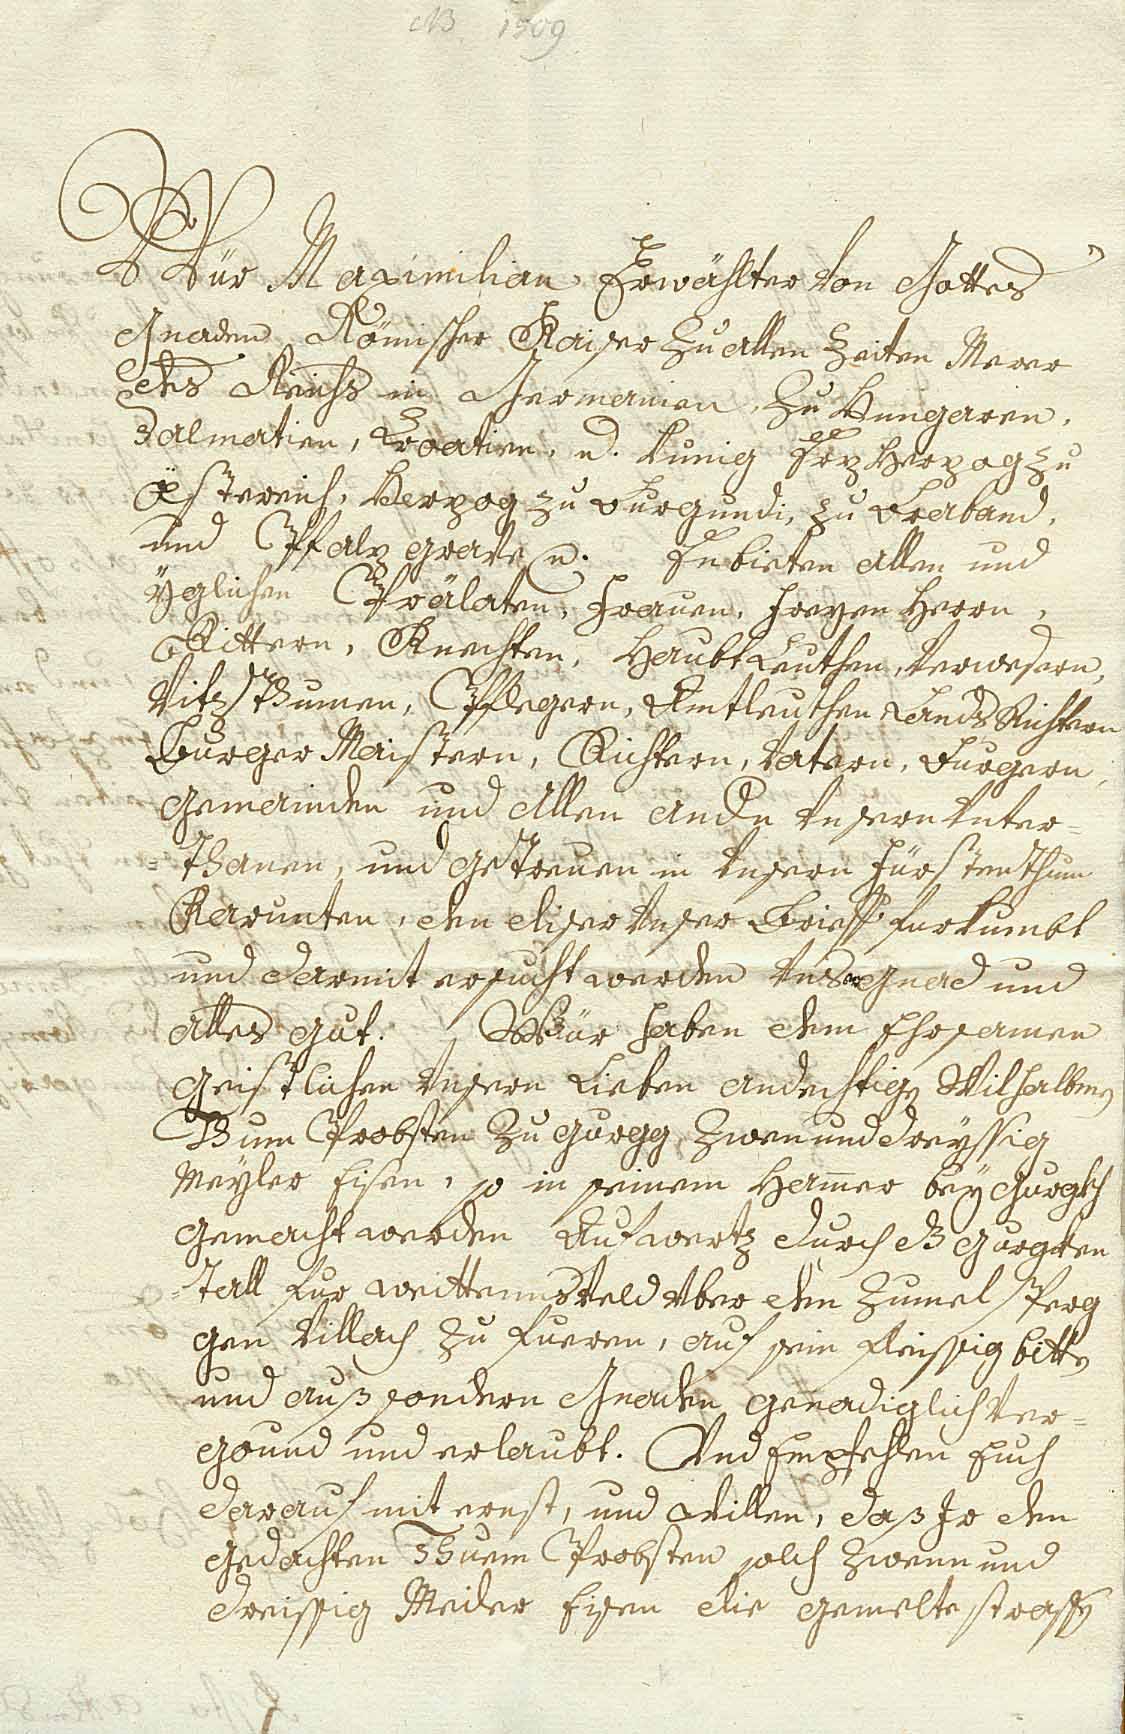 NB 1509
Wür Maximilian Erwählter von Gottes
Gnaden Römischer Kaiser zu allen Zeiten Merer
des Reichs in Germanien, zu Hungaren,
Dalmatien, Croatien, u. Kunig Erz Herzog zu
Österreich, Herzog zu Burgundi, zu Braband,
und Pfalz Grave u. Enbieten allen und
Yglichen Prälaten, Graven, Freyen Herrn,
Rittern, Knechten, Haubt Leuthen, Verwesern,
Vitzthumen, Pflegern, Ambtleuthen Landts Richtern
Burger Maistern, Richtern, Ratern, Burgern,
Gemainden und Allen andn Unsern Unter=
=thanen, und getreuen in Unsern Fürstenthum
Karnnten, den diser Unser Brieff furkumbt
und darmit ersucht werden Unser Gnad und
alles gut. Wür haben dem Ehrsamen
Geistlichen Unsern Lieben andechtign Wilhalbmn
Thum Probsten zu Gurgg, zwen und dreyssig
Meyler Eisen, so in seinem Hammer bey Gurgkh
gemacht werden Aufwertz durch dz Gurgken
=tall fur Weittensveld uber den Zumel Perg
gen Villach zu fueren, auf sein fleissig bittn
und auß sondern Gnaden genediglich ver=
gound und erlaubt. Und Empfehlen Euch
darauf mit ernst, und Willen, daß Jr den
gedachten Thuem Probsten solch zwenn und
dreissig Meiler Eisen die gemelte strassn